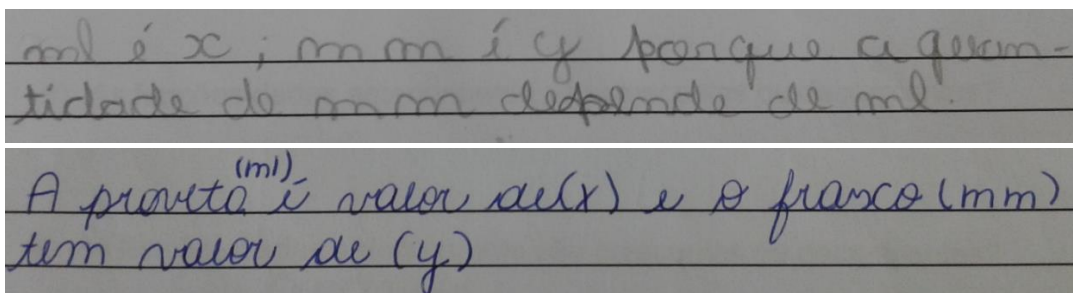 ml é x; mm é y porque a quan-
tidade de mm depende de ml.
A proveta (ml) é valor de (x) e o frasco (mm)
tem valor de (y)